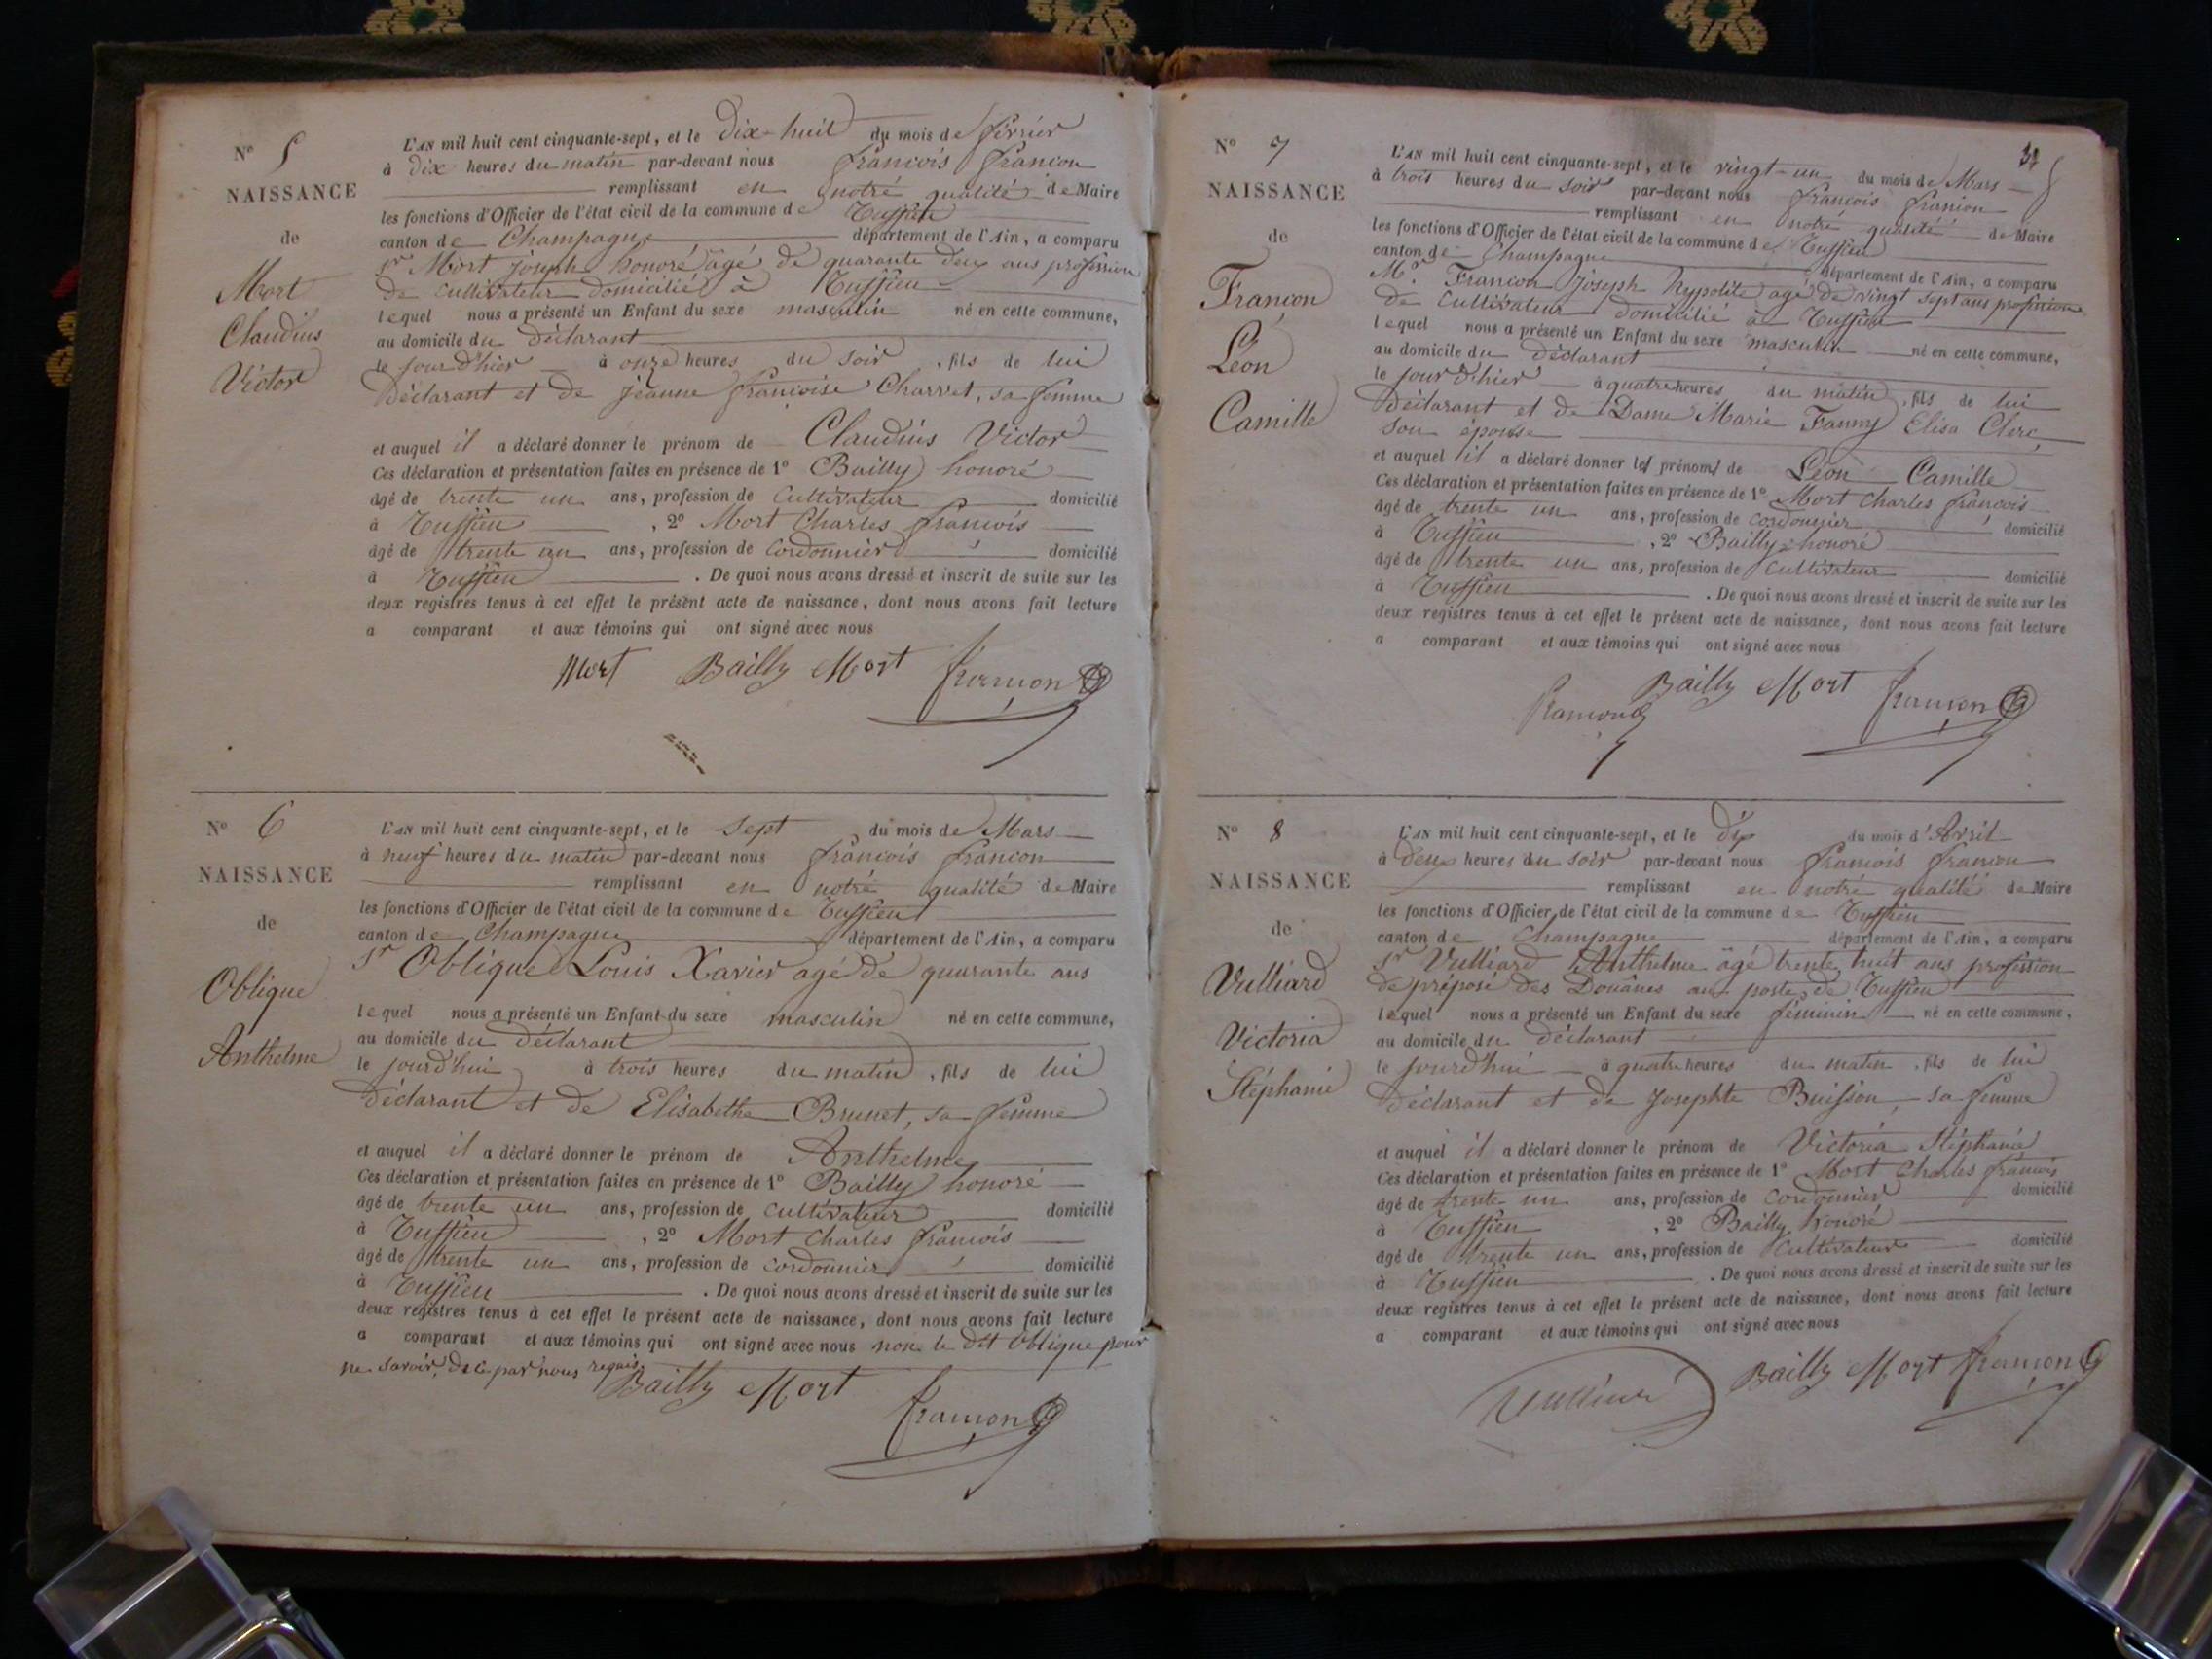 N° 5
NAISSANCE
de
Mort
Claudius
Victor
L'AN mil huit cent cinquante-sept, et le dix-huit du mois de février
à dix heures du matin par-devant nous françois françon
remplissant en notre qualité de Maire
les fonctions d'Officier de l'état civil de la commune de Ruffieu
canton de Champagne département de l'Ain, a comparu
Sr Mort joseph honoré agé de quarante deux ans profession
de cultivateur domicilié à Ruffieu
lequel nous a présenté un Enfant du sexe masculin né en cette commune,
au domicile du déclarant
le jour d'hier à onze heures du soir, fils de lui
déclarant et de jeanne françoise Charvet, sa femme
et auquel il a déclaré donner le prénom de Claudius Victor
Ces déclaration et présentation faites en présence de 1° Bailly honoré
âgé de trente un ans, profession de cultivateur domicilié
à Ruffieu, 2° Mort Charles françois
âgé de trente un ans, profession de cordonnier domicilié
à Ruffieu. De quoi nous avons dressé et inscrit de suite sur les
deux registres tenus à cet effet le présent acte de naissance, dont nous avons fait lecture
a comparant et aux témoins qui ont signé avec nous
Mort Bailly Mort françon
N° 6
NAISSANCE
de
Oblique
Anthelme
L'AN mil huit cent cinquante-sept, et le sept du mois de Mars
à neuf heures du matin par-devant nous françois françon
remplissant en notre qualité de Maire
les fonctions d'Officier de l'état civil de la commune de Ruffieu
canton de Champagne département de l'Ain, a comparu
Sr Oblique Louis Xavier agé de quarante ans
lequel nous a présenté un Enfant du sexe masculin né en cette commune,
au domicile du déclarant
le jourd'hui à trois heures du matin, fils de lui
déclarant et de Elisabethe Brunet, sa femme
et auquel il a déclaré donner le prénom de Anthelme
Ces déclaration et présentation faites en présence de 1° Bailly honoré
âgé de trente un ans, profession de cultivateur domicilié
à Ruffieu, 2° Mort Charles françois
âgé de trente un ans, profession de cordonnier domicilié
à Ruffieu. De quoi nous avons dressé et inscrit de suite sur les
deux registres tenus à cet effet le présent acte de naissance, dont nous avons fait lecture
a comparant et aux témoins qui ont signé avec nous non le dit Oblique pour
ne savoir, de ce par nous requis.
Bailly Mort françon
N° 7
NAISSANCE
de
Françon
Léon
Camille
L'AN mil huit cent cinquante-sept, et le vingt-un du mois de Mars
à trois heures du soir par-devant nous françois françon
remplissant en notre qualité de Maire
les fonctions d'Officier de l'état civil de la commune de Ruffieu
canton de Champagne département de l'Ain, a comparu
Mr. Françon Joseph hypolite agé de vingt sept ans profession
de cultivateur domicilié à Ruffieu
lequel nous a présenté un Enfant du sexe masculin né en cette commune,
au domicile du déclarant
le jour d'hier à quatre heures du matin, fils de lui
déclarant et de Dame Marie Fanny Elisa Clerc,
son épouse
et auquel il a déclaré donner les prénoms de Léon Camille
Ces déclaration et présentation faites en présence de 1° Mort Charles françois
âgé de trente un ans, profession de cordonnier domicilié
à Ruffieu, 2° Bailly honoré
âgé de trente un ans, profession de cultivateur domicilié
à Ruffieu. De quoi nous avons dressé et inscrit de suite sur les
deux registres tenus à cet effet le présent acte de naissance, dont nous avons fait lecture
a comparant et aux témoins qui ont signé avec nous
françon Bailly Mort françon
N° 8
NAISSANCE
de
Vulliard
Victoria
Stéphanie
L'AN mil huit cent cinquante-sept, et le dix du mois d'Avril
à deux heures du soir par-devant nous françois françon
remplissant en notre qualité de Maire
les fonctions d'Officier de l'état civil de la commune de Ruffieu
canton de Champagne département de l'Ain, a comparu
Sr Vulliard Anthelme âgé trente huit ans profession
de préposé des Douanes au poste de Ruffieu
lequel nous a présenté un Enfant du sexe féminin né en cette commune,
au domicile du déclarant
le jourd'hui à quatre heures du matin, fils de lui
déclarant et de Josephte Buisson, sa femme
et auquel il a déclaré donner le prénom de Victoria Stéphanie
Ces déclaration et présentation faites en présence de 1° Mort Charles françois
âgé de trente un ans, profession de cordonnier domicilié
à Ruffieu, 2° Bailly honoré
âgé de trente un ans, profession de cultivateur domicilié
à Ruffieu. De quoi nous avons dressé et inscrit de suite sur les
deux registres tenus à cet effet le présent acte de naissance, dont nous avons fait lecture
a comparant et aux témoins qui ont signé avec nous
Vulliard Bailly Mort françon